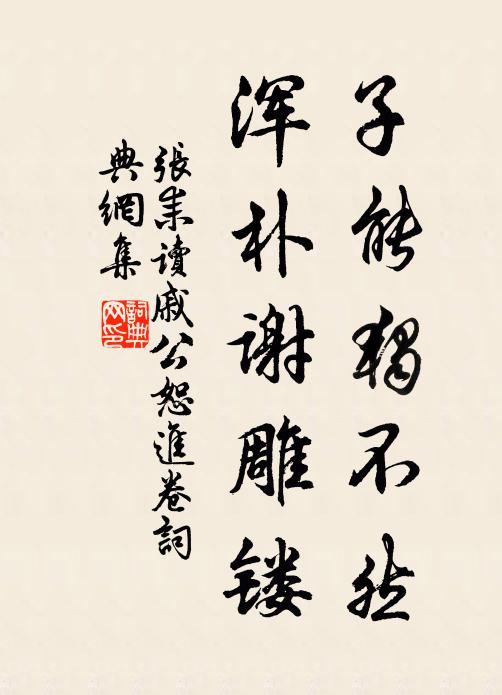 子能独不然
浑朴谢雕镂
張耒讀戚公恕進卷詞
典網集
詞典網印